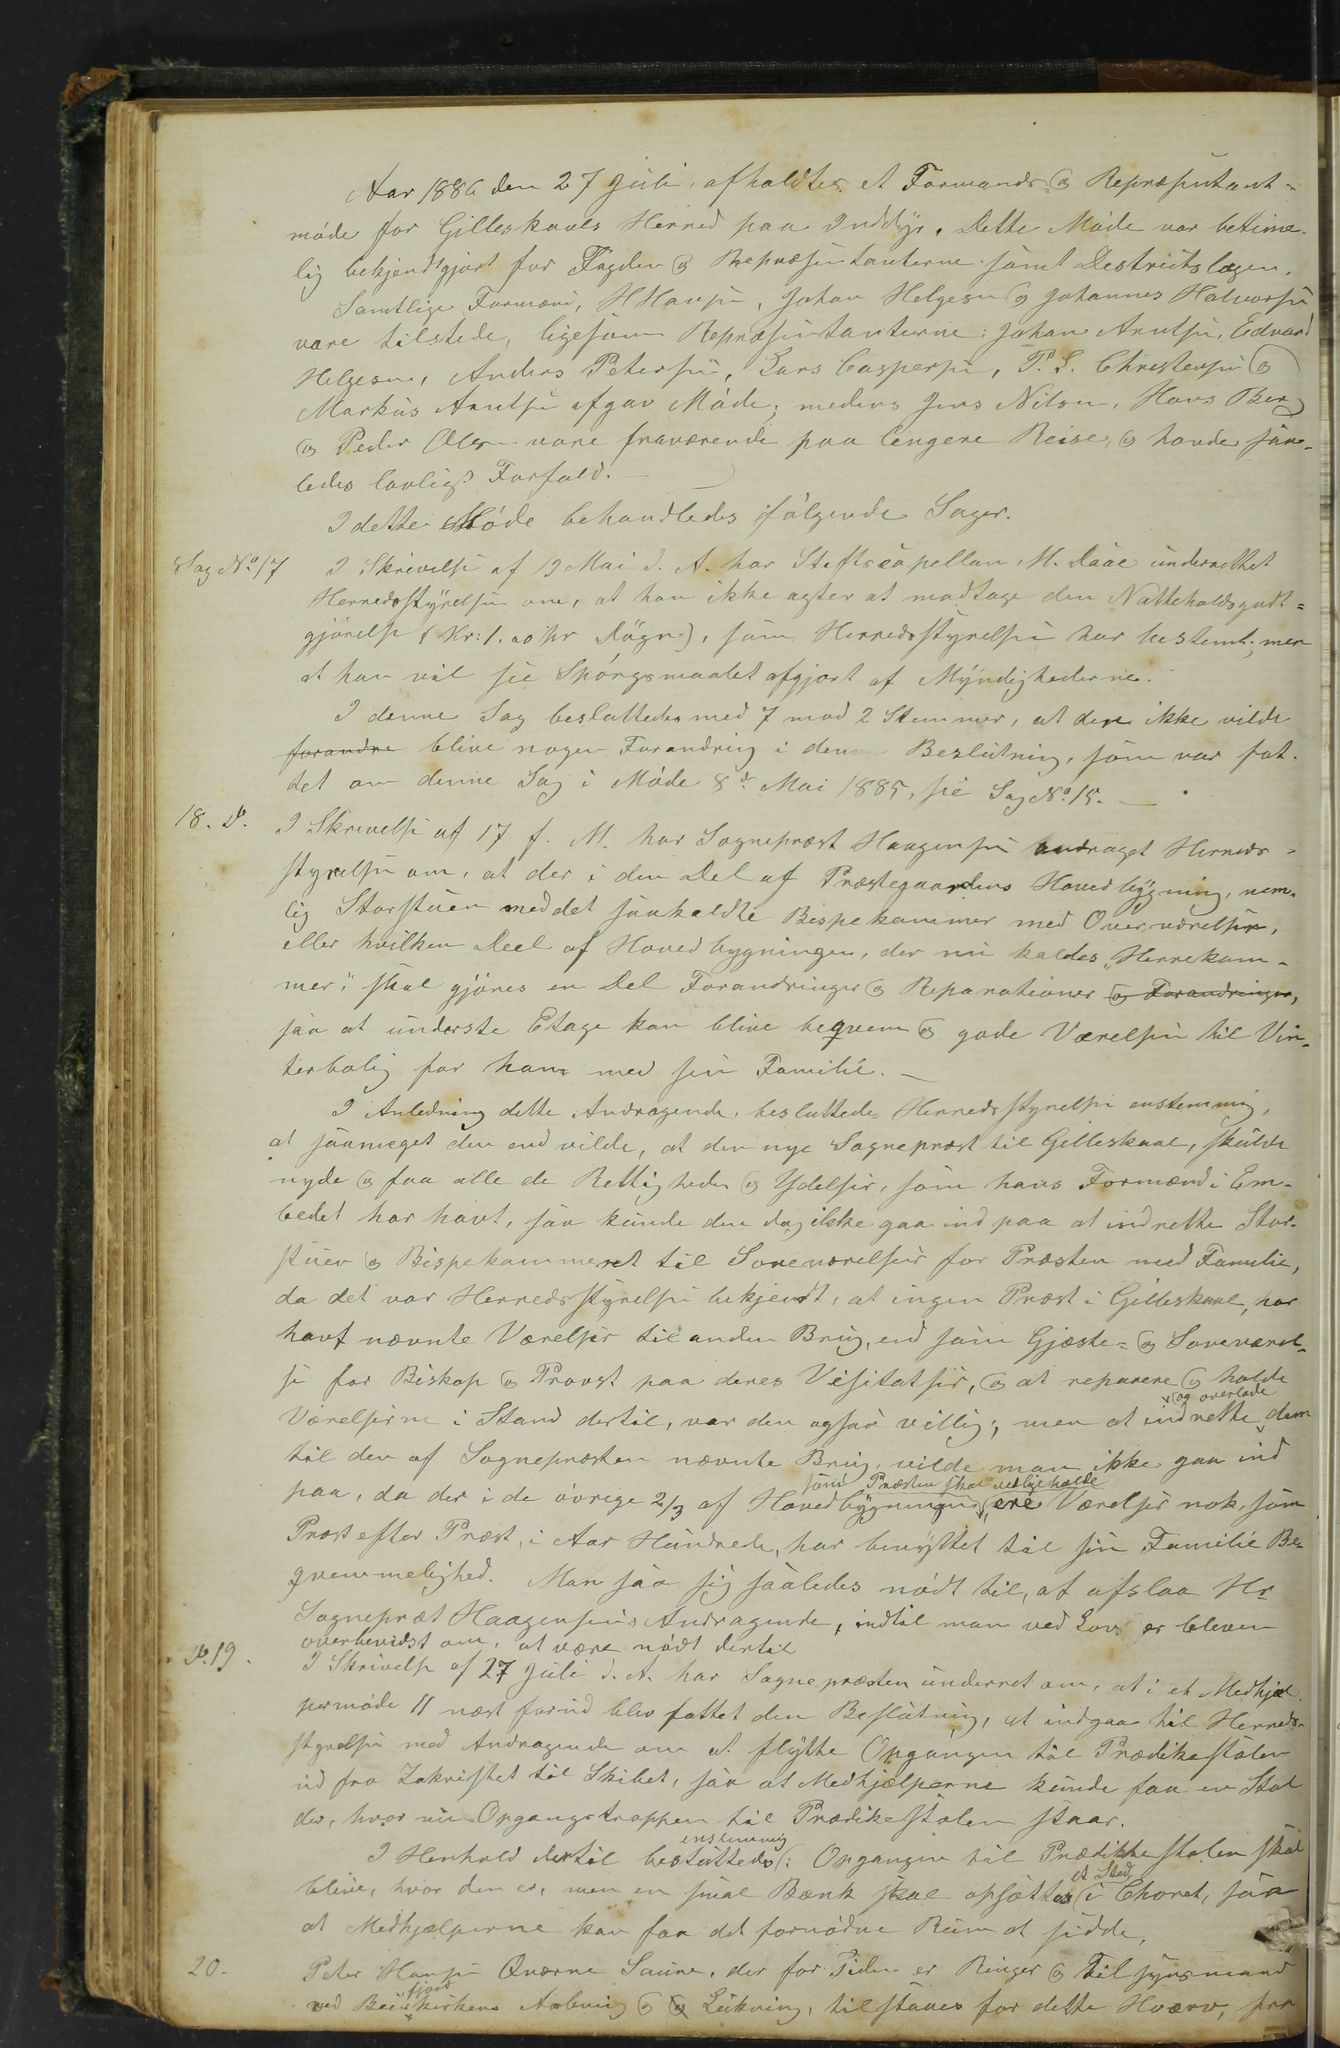 Aar 1886 den 27 Juli, afholdtes et Formands- og Repræsentant-
møde for Gilleskaals Herred paa Inddyr. Dette Møde var betime-
lig bekjendtgjort for Fogden og Repræsentanterne samt Destriktslægen.
Samtlige Formænd, H Hansen, Johan Helgesen og Johannes Halvorsen
vare tilstede, ligesom Repræsentanterne: Johan Arntsen, Edvard
Helgesen, Anders Petersen, Lars Caspersen, P. L. Christensen og
Markus Arntsen afgav Møde; medens Jens Nilsen, Hans Berg
og Peder Olsen vare fraværende paa længere Reise, og havde saa-
ledes lovligt Forfald. —
I dette Møde behandledes følgende Sager.
Sag No 17 I Skrivelse af 19 Mai d. A. har Stiftscapellan M. Daae underrettet
Herredsstyrelsen om, at han ikke agter at modtage den Natteholdsgodt-
gjørelse (Kr: 1.20 pr Døgn), som Herredsstyrelsen har bestemt; men
at han vil see Spørgsmaalet afgjort af Myndighederne.
I denne Sag besluttedes med 7 mod 2 Stemmer, at der ikke vilde
forandre blive nogen Forandring i den Beslutning, som var fat-
tet om denne Sag i Møde 8de Mai 1885, see Sag No 15. —
18. do. I Skrivelse af 17 f. M. har Sognepræst Haagensen andraget Herreds-
styrelsen om, at der i den Del af Præstegaardens Hovedbygning, nem-
lig Storstuen med det saakaldte Bispekammer med Overværelser,
eller hvilken Deel af Hovedbygningen, der nu kaldes "Herrekam-
mer", skal gjøres en Del Forandringer og Reparationer og Forandringer,
saa at underste Etage kan blive beqvem og gode Værelsen til Vin-
terbolig for ham med sin Familie. —
I Anledning dette Andragende, besluttede Herredsstyrelsen enstemmig,
at saameget den end vilde, at den nye Sognepræst til Gilleskaal, skulde
nyde og faa alle de Rettigheder og Ydelser, som hans Formænd i Em-
bedet har havt, saa kunde den dog ikke gaa ind paa at indrette Stor-
stuen og Bispekammeret til Soveværelser for Præsten med Familie,
da det var Herredsstyrelsen bekjendt, at ingen Præst i Gilleskaal, har
havt nævnte Værelser til anden Brug, end som Gjæste- og Soveværel-
se for Biskop og Provst paa deres Visitatser, og at reparere og holde
Værelserne i Stand dertil, var den ogsaa villig; men at indrette og overlade dem
til den af Sognepræsten nævnte Brug, vilde man ikke gaa ind
paa, da der i de øvrige 2/3 af Hovedbygningen som Præsten skal vedligeholde ere Værelser nok, som
Præst efter Præst, i Aar Hundrede, har benyttet til sin Familie Be-
qvemmelighed. Man saa sig saaledes nødt til, at afslaa Hr
Sognepræst Haagensens Andragende, indtil man ved Lov er bleven
overbevidst om, at være nødt dertil
do. 19. I Skrivelse af 27 Juli d. A. har Sognepræsten underret om, at i et Medhjæl-
permøde 11 næst forud blev fattet den Beslutning, at indgaa til Herreds-
styrelsen med Andragende om at flytte Opgangen til Prædikestolen
ud fra Zakristiet til Skibet, saa at Medhjælperne kunde faa en Stol
der, hvor nu Opgangstrappen til Prædikestolen staar.
I Henhold dertil besluttedes enstemmig: Opgangen til Prædikkestolen skal
blive, hvor den er, men en smal Bænk skal opsættes et Sted i Choret, saa
at Medhjælperne kan faa det fornødne Rum at sidde.
20. Peter Hansen Qværne Saune, der for Tiden er Ringer og Tilsynsmand
ved Beierfjordkirkens Aabning og Lukning, tilstaaes for dette Hværv, fra